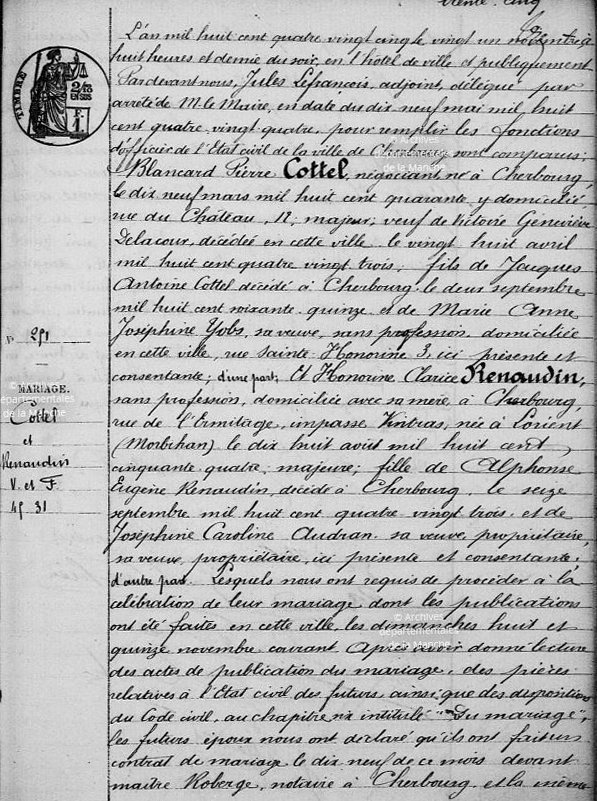 trente cinq
L'an mil huit cent quatre vingt cinq le vingt un novembre à
huit heures et demie du soir, en l'hôtel de ville et publiquement
Pardevant nous, Jules Lefrancois, adjoint, délégué par
arrêté de M. le Maire, en date du dix neuf mai mil huit
cent quatre vingt quatre, pour remplir les fonctions
d'officier de l'Etat civil de la ville de Cherbourg, sont comparus;
Blancard Pierre Cottel, négociant, né à Cherbourg,
le dix neuf mars mil huit cent quarante, y domicilié
rue du Château, 12, majeur; veuf de Victoire Geneviève
Delacour, décédée en cette ville le vingt huit avril
mil huit cent quatre vingt trois; fils de Jacques
Antoine Cottel décédé à Cherbourg le deux septembre
mil huit cent soixante quinze et de Marie Anne
Joséphine Yobs, sa veuve, sans profession, domiciliée
en cette ville, rue Sainte Honorine 3, ici présente et
consentante; d'une part; Et Honorine Clarice Renaudin,
sans profession, domiciliée avec sa mère à Cherbourg,
rue de l'Ermitage, impasse Vintras, née à Lorient
(Morbihan) le dix huit août mil huit cent
cinquante quatre, majeure; fille de Alphonse
Eugène Renaudin, décédé à Cherbourg le seize
septembre mil huit cent quatre vingt trois et de
Joséphine Caroline Audran sa veuve, propriétaire,
sa veuve, propriétaire, ici présente et consentante;
d'autre part. Lesquels nous ont requis de procéder à la
célébration de leur mariage dont les publications
ont été faites en cette ville, les dimanches huit et
quinze novembre courant Après avoir donné lecture
des actes de publication du mariage, des pièces
relatives à l'Etat civil des futurs, ainsi que des dispositions
du Code civil, au chapitre six intitulé "Du mariage",
les futurs époux nous ont déclaré qu'ils ont fait un
contrat de mariage le dix neuf de ce mois devant
maître Roberge, notaire à Cherbourg et la même
TIMBRE
2/10
EN SUS
F.
1.
N° 251
MARIAGE.
Cottel
et
Renaudin
V. et F.
45 31
© Archives
départementales
de la Manche
© Archives
départementales
de la Manche
© Archives
départementales
de la Manche